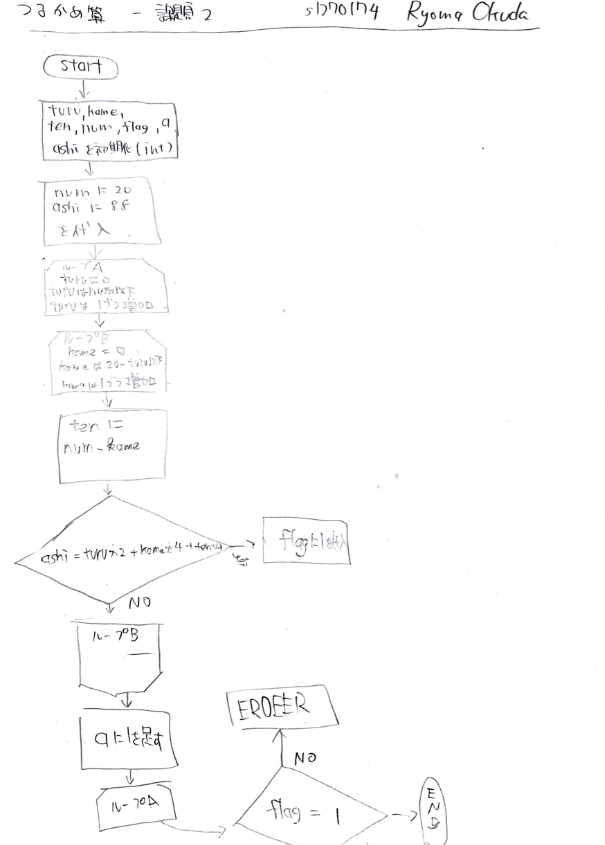 つるかめ算 - 課題2 s1270174 Ryoma Okuda
start
turu, kame,
ten, num, flag, a
ashi を初期化(int)
num に 20
ashi に 88
を代入
ループA
turu = 0
turuはnum以下
turuは1ずつ増加
ループB
kame = 0
kameは20-turu以下
kameは1ずつ増加
ten に
num - kame
ashi = turu×2 + kame×4 +
Yes
flagに1を代入
NO
ループB
aに1を足す
ループA
flag = 1
NO
END